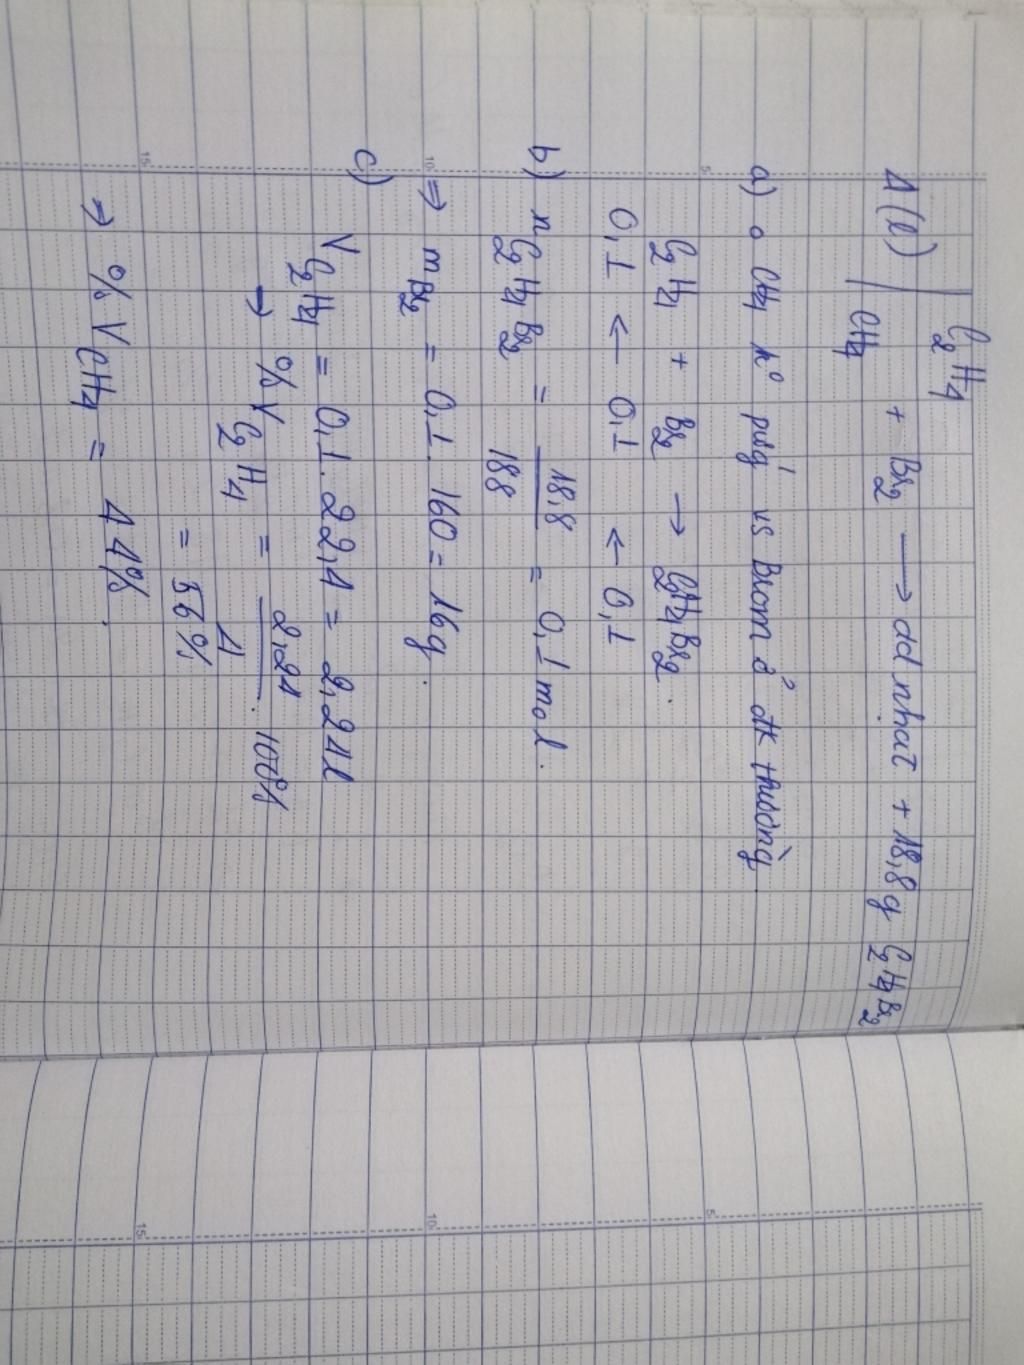 C2H4
4(l) + Br2 → dd nhạt + 18,8g C2H4Br2
CH4
a) • CH4 ko pứg vs Brom ở đk thường
C2H4 + Br2 → C2H4Br2.
0,1 ← 0,1 ← 0,1
b) nC2H4Br2 = 18,8 / 188 = 0,1 mol.
⇒ mBr2 = 0,1. 160 = 16g.
c)
VC2H4 = 0,1. 22,4 = 2,24l
→ % VC2H4 = 2,24 / 4 . 100%
= 56%
→ % VCH4 = 44%.
5
10
15
5
10
15